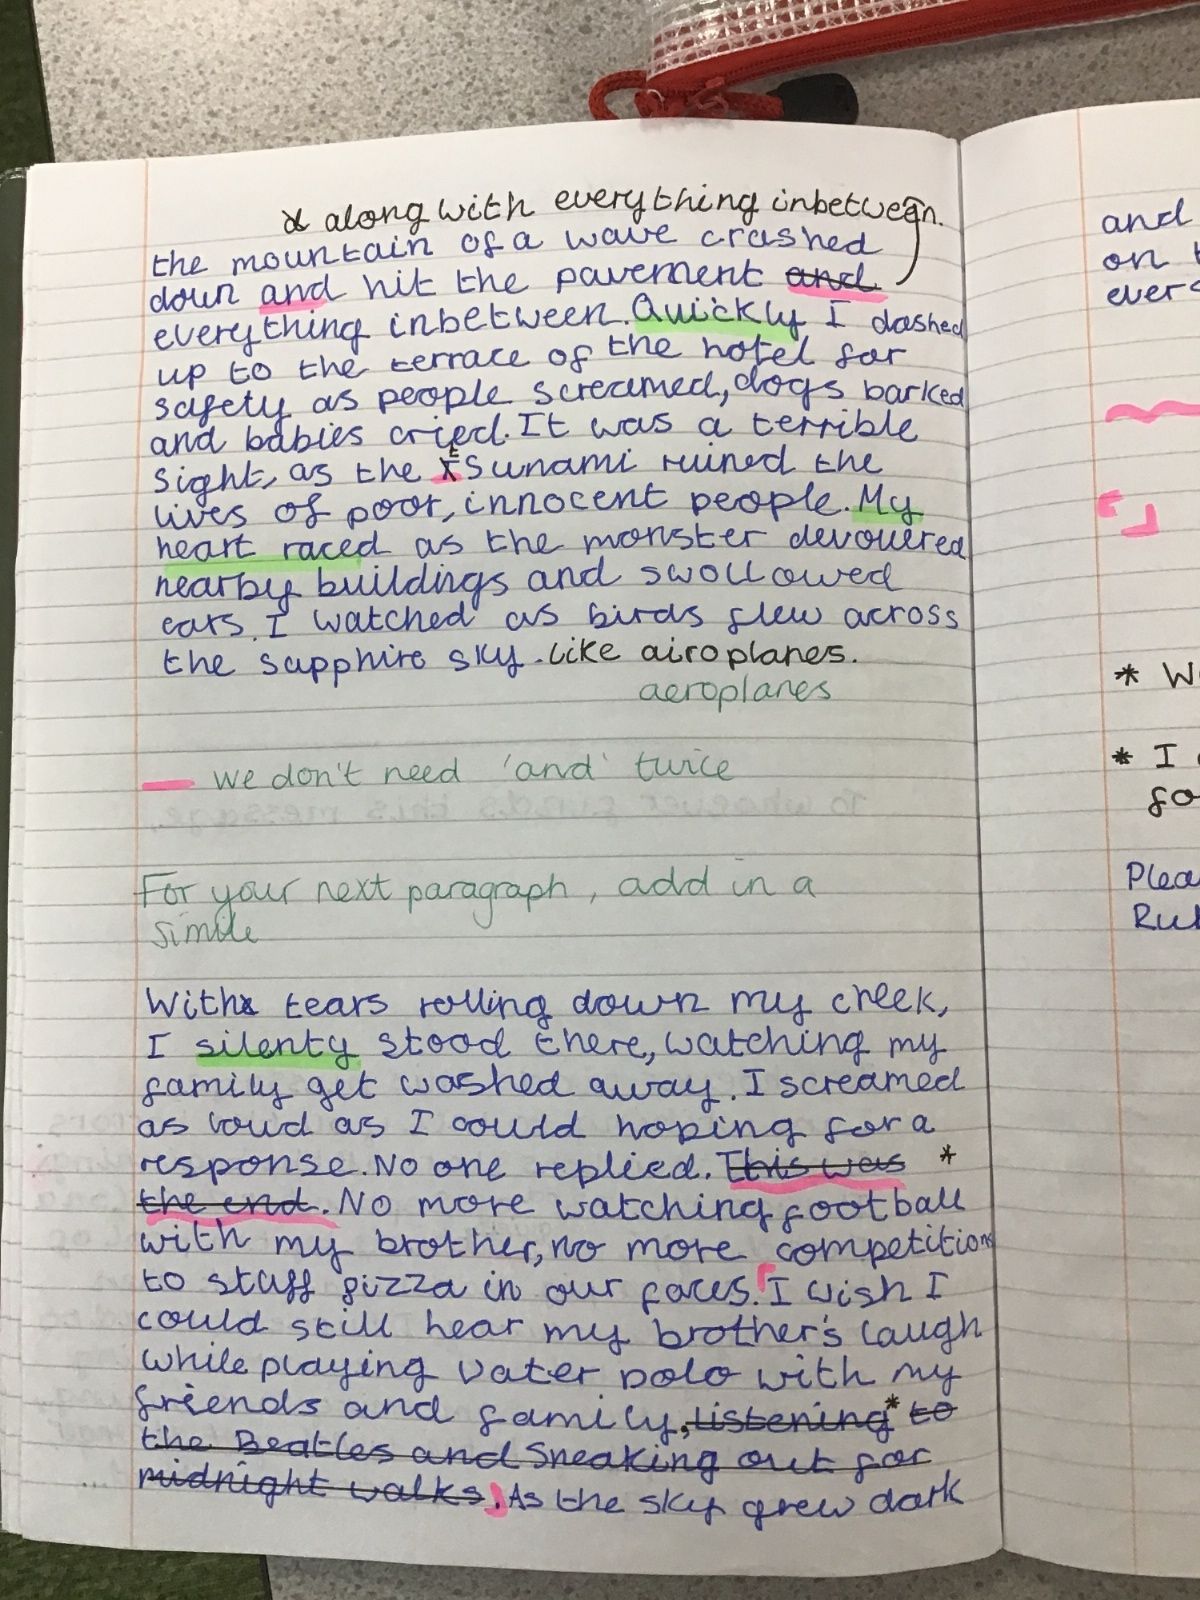 along with everything inbetween.
the mountain of a wave crashed
down and hit the pavement and
everything inbetween. Quickly I dashed
up to the terrace of the hotel for
safety as people screamed, dogs barked
and babies cried. It was a terrible
sight, as the tsunami ruined the
lives of poor, innocent people. My
heart raced as the monster devoured
nearby buildings and swollowed
cars. I watched as birds flew across
the sapphire sky. like airoplanes.
aeroplanes
we don't need 'and' twice
For your next paragraph, add in a
simile
With tears rolling down my cheek,
I silenty stood there, watching my
family get washed away. I screamed
as loud as I could hoping for a
response. No one replied. This was *
the end. No more watching football
with my brother, no more competitions
to stuff pizza in our faces. I wish I
could still hear my brother's laugh
while playing water polo with my
friends and family, listening * to
the Beatles and Sneaking out for
midnight walks. As the sky grew dark
and
on
ever
* W
* I
fo
Plea
Ru